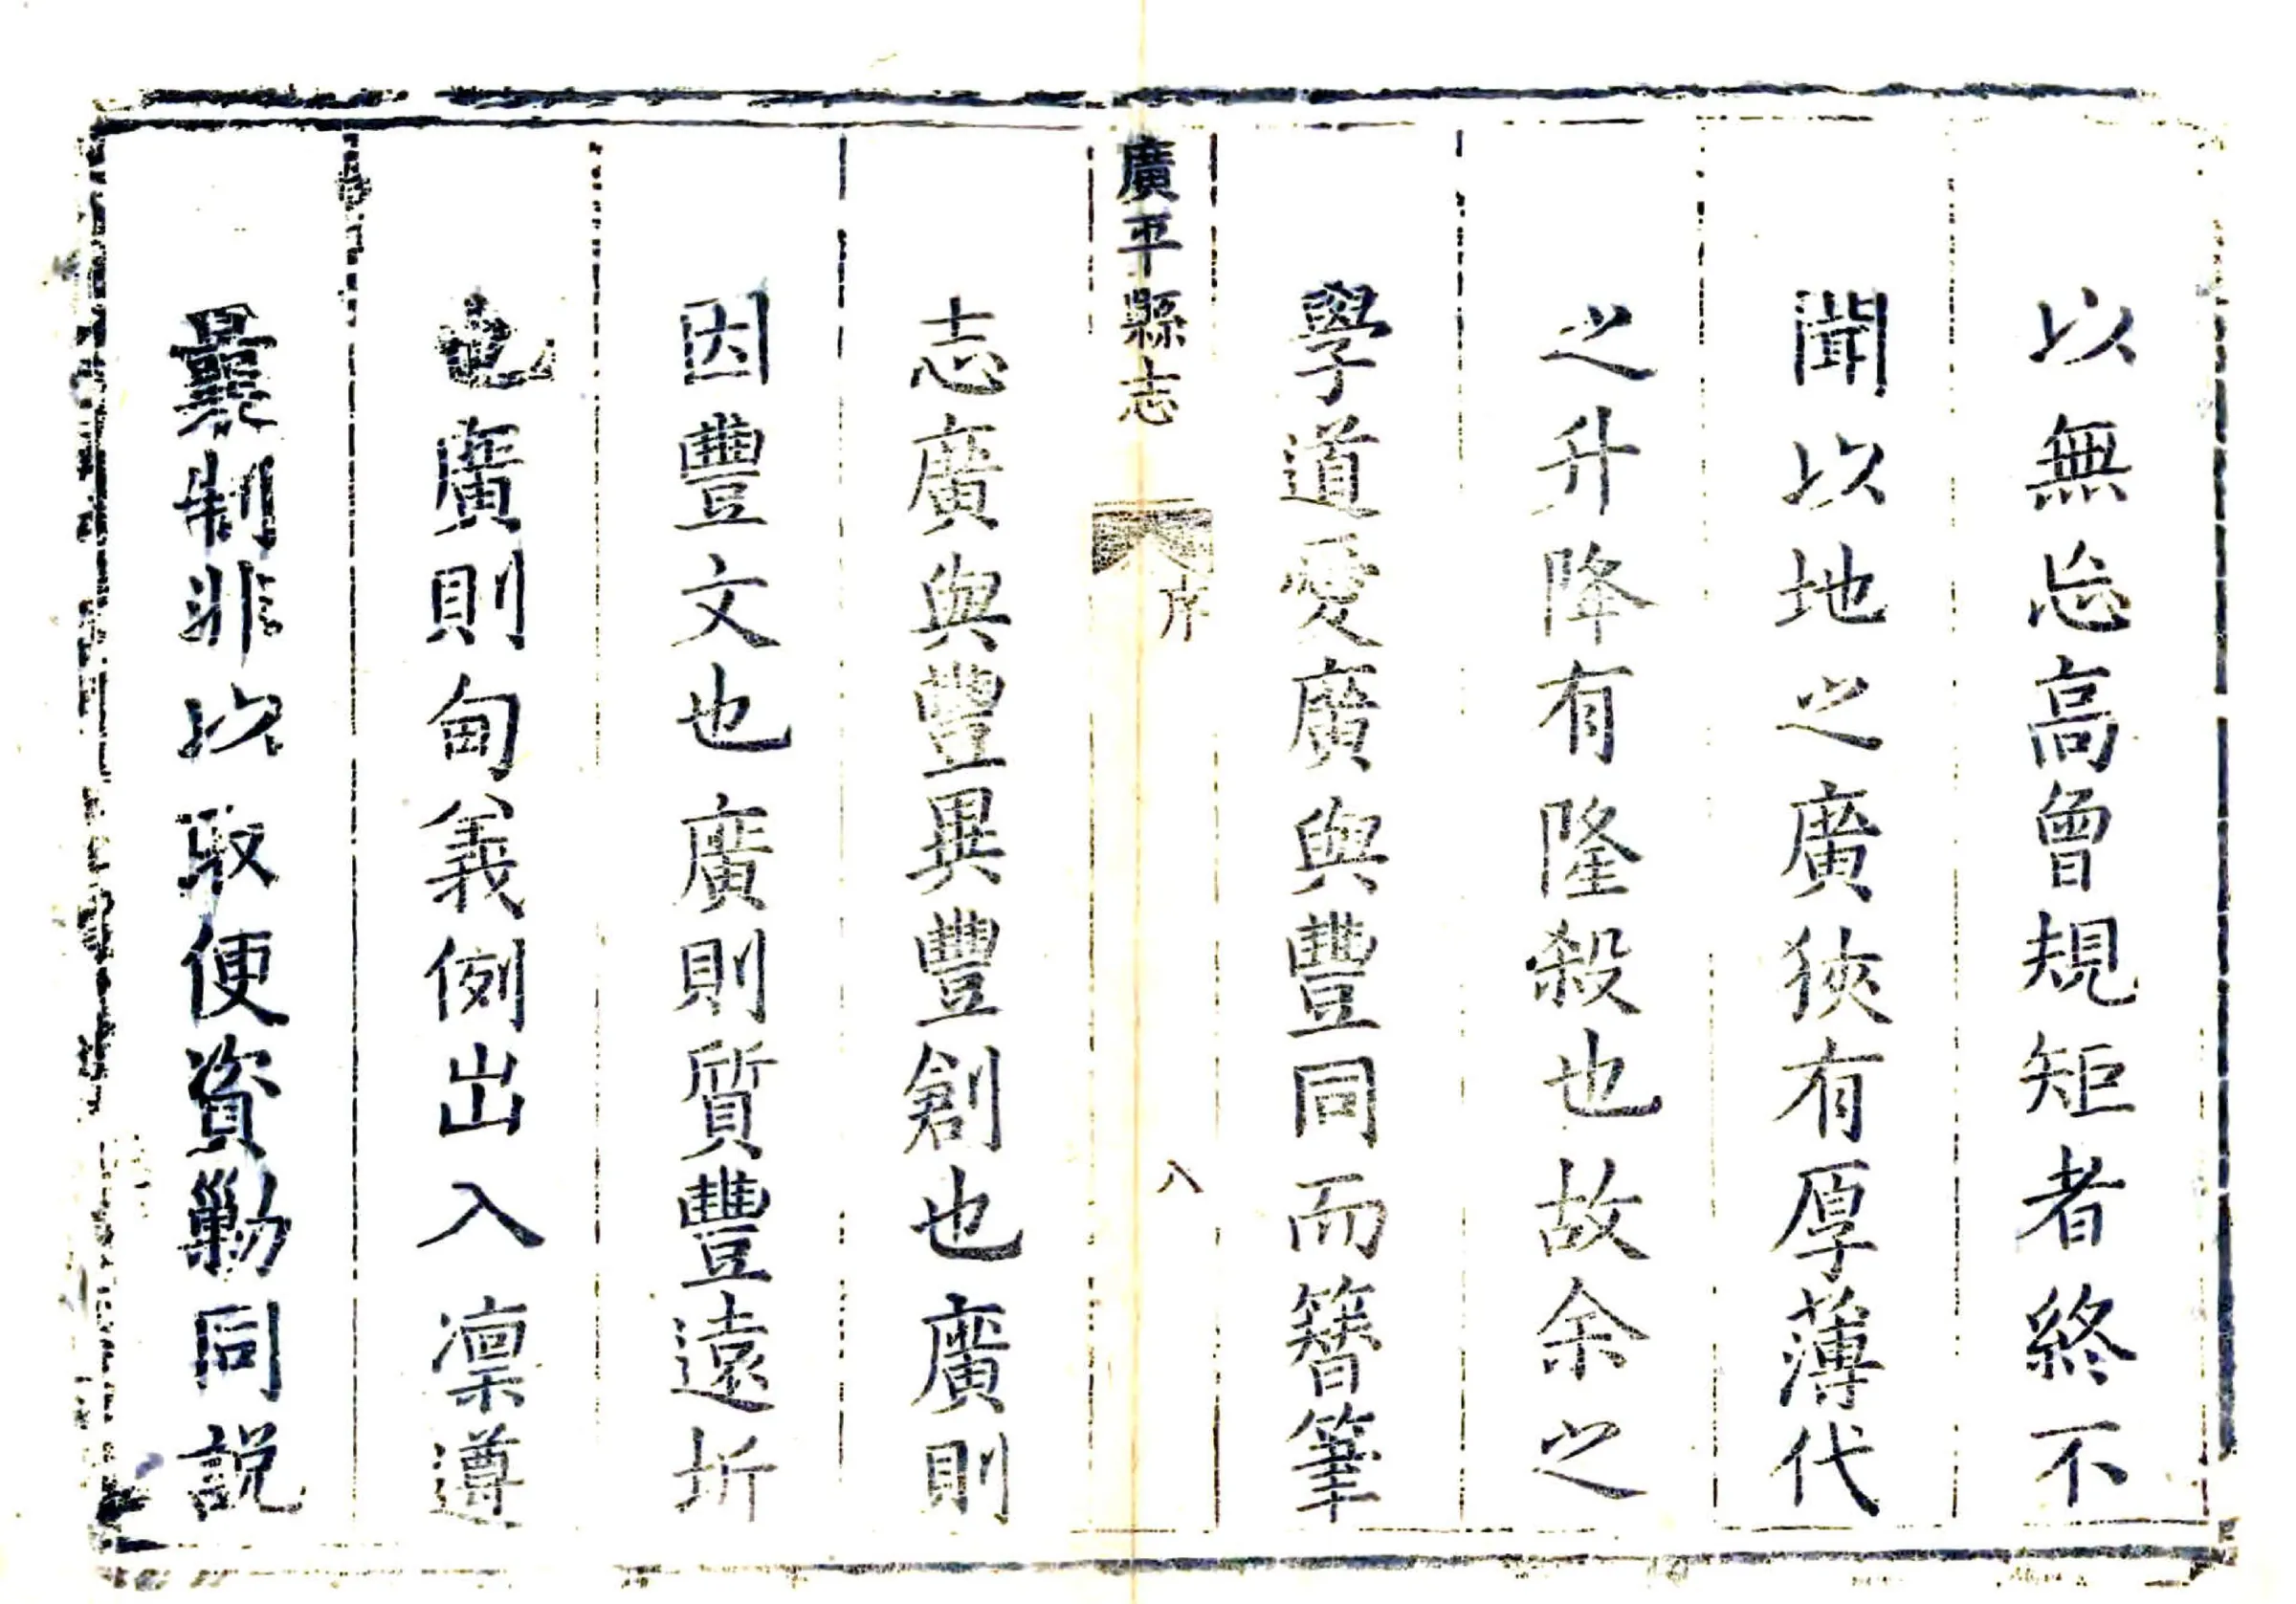 以無忘高曾規矩者終不
聞以地之廣狹有厚薄代
之升降有隆殺也故余之
學道愛廣與豐同而簪筆
廣平縣志
序
八
志廣與豐異豐創也廣則
因豐文也廣則質豐遠圻
也廣則甸義例出入凜遵
曩制非以取便資勦同説